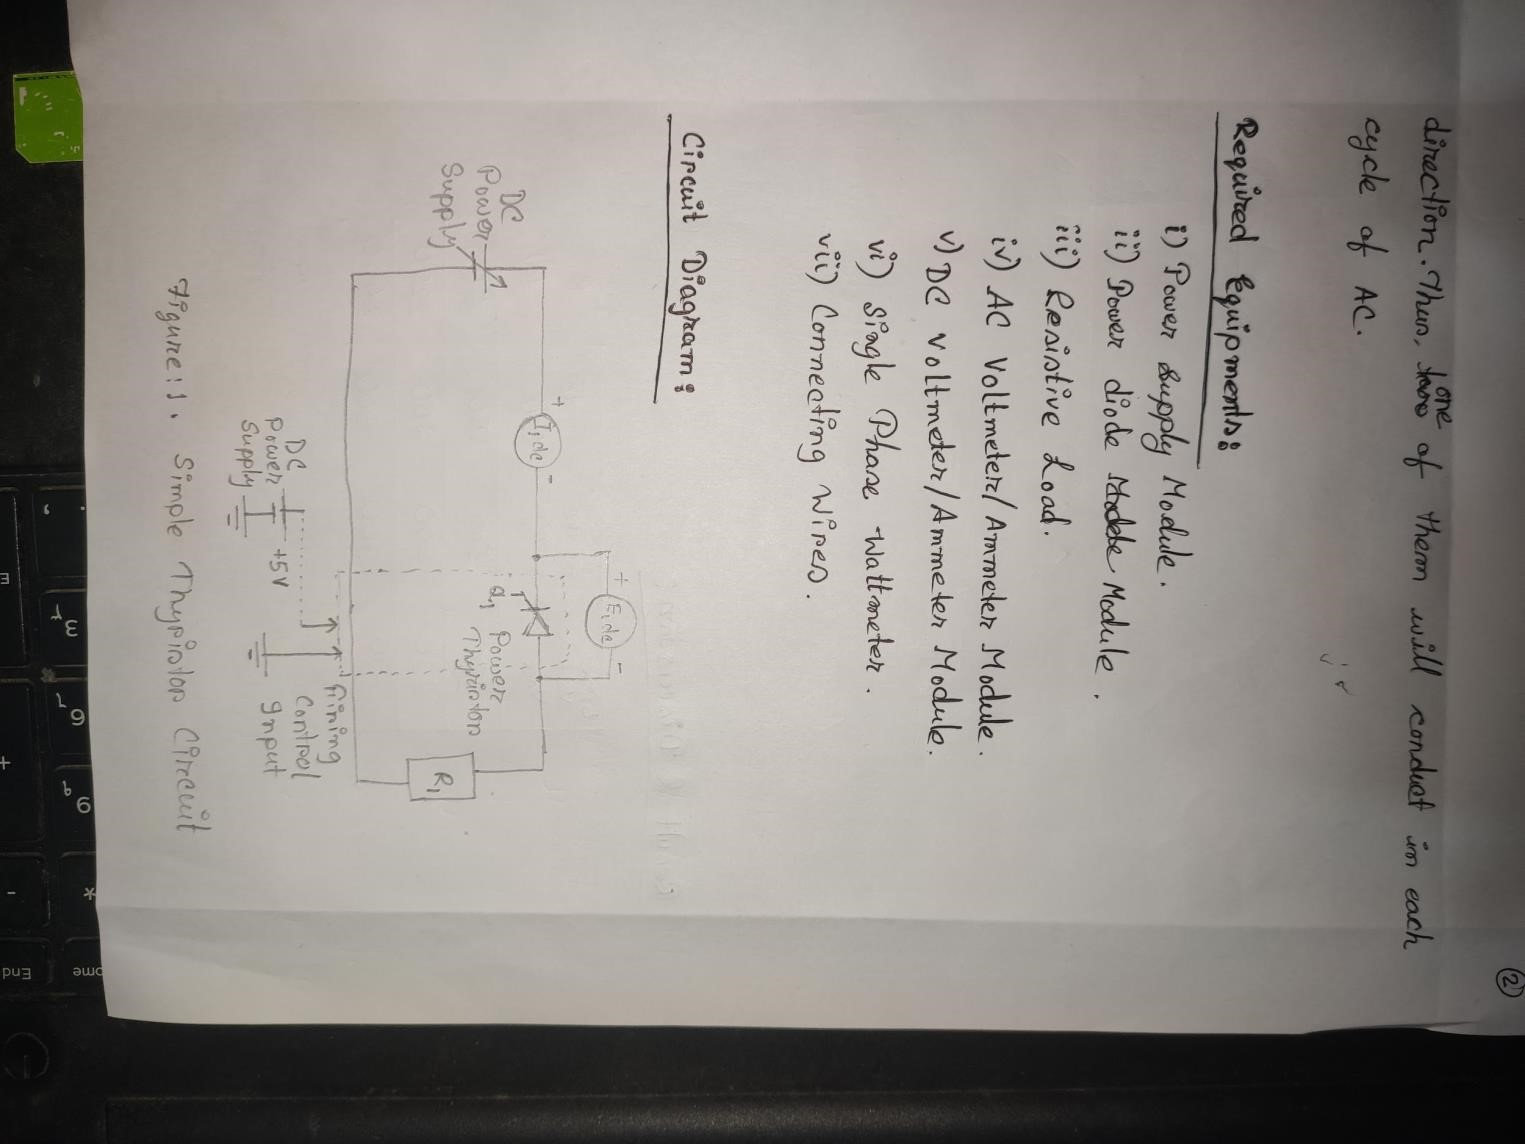 2
direction. Thus, one of them will conduct in each
cycle of AC.
Required Equipments:
i) Power Supply Module.
ii) Power diode Module.
iii) Resistive Load.
iv) AC Voltmeter/Ammeter Module.
v) DC Voltmeter/Ammeter Module.
vi) Single Phase Wattmeter.
vii) Connecting Wires.
Circuit Diagram:
DC
Power
Supply
+
I1dc
-
+
E1dc
-
Q1
Power
Thyristor
R1
DC
Power
Supply
+5V
Firing
Control
Input
Figure:1. Simple Thyristor Circuit
End